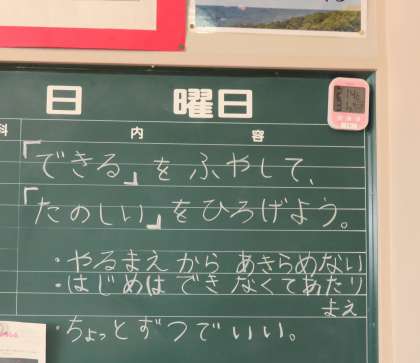 日 曜日
科 内 容
「できる」を ふやして、
「たのしい」をひろげよう。
・やるまえ から あきらめない
・はじめは でき なくてあたり
まえ
・ちょっと ずつでいい。